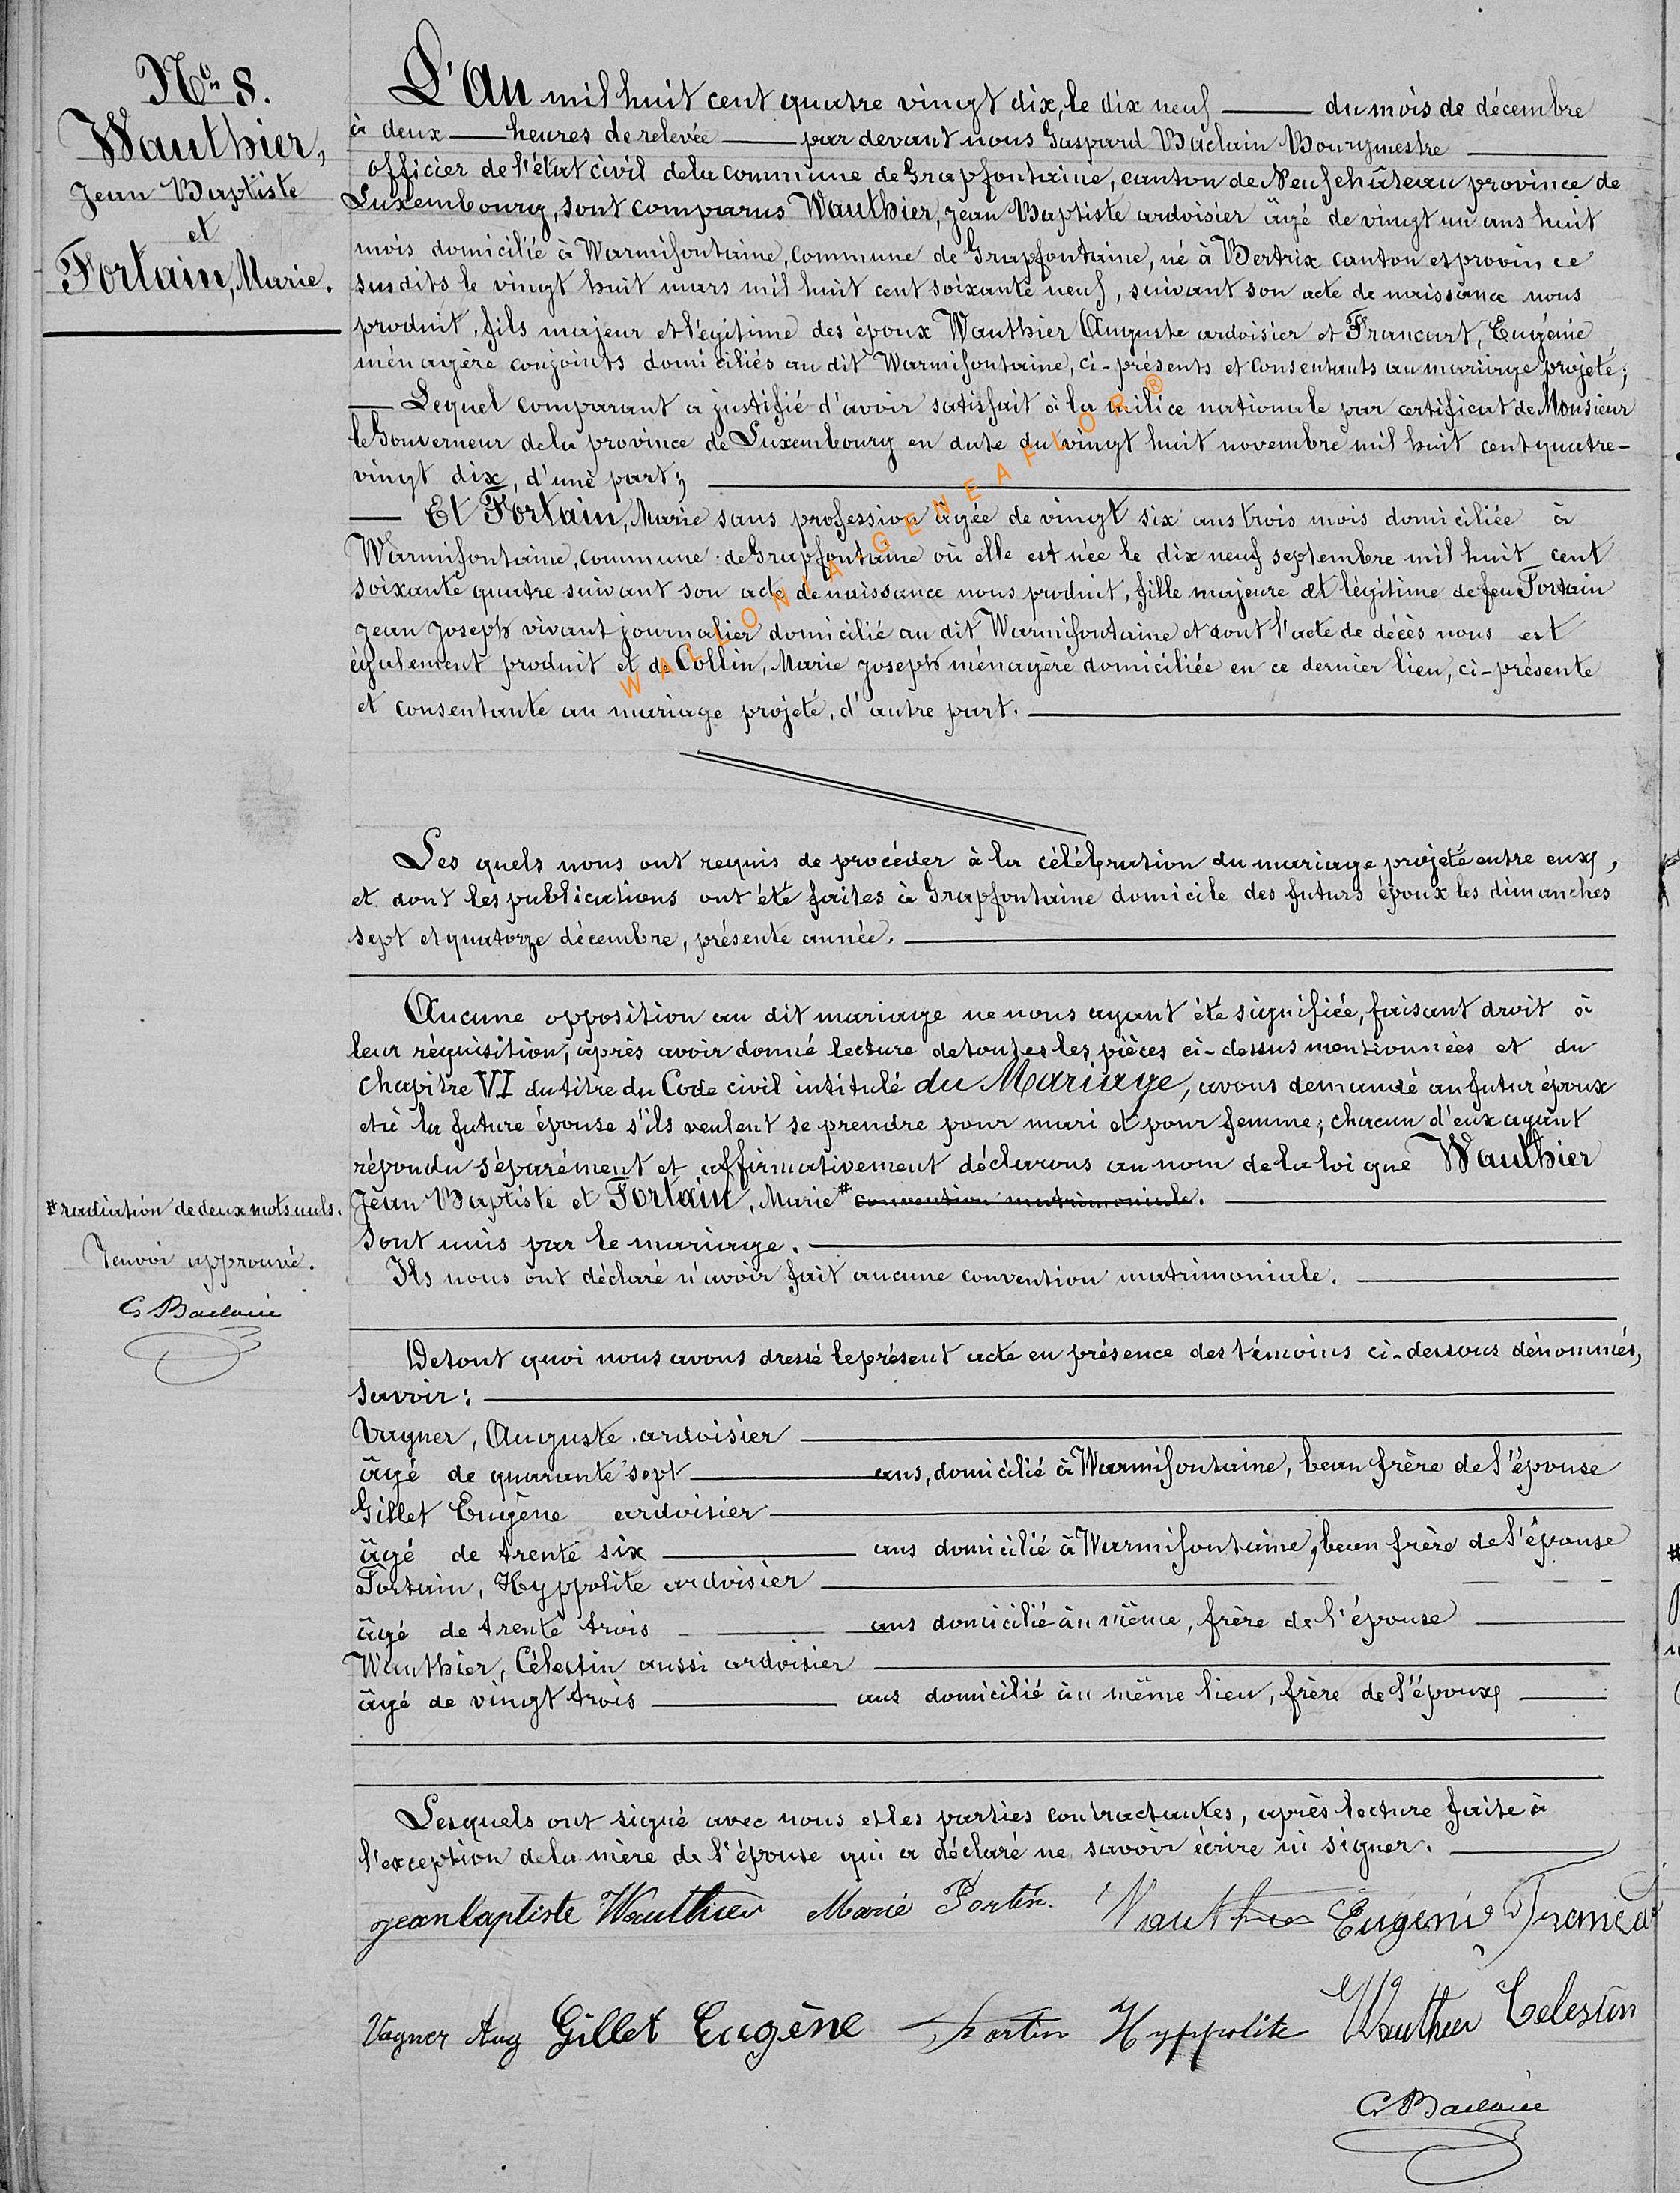 N° 8.
Wauthier,
Jean Baptiste
et
Fortain, Marie.
L'An mil huit cent quatre vingt dix, le dix neuf du mois de décembre
à deux heures de relevée par devant nous Gaspard Baclain Bourgmestre
officier de l'état civil de la commune de Grapfontaine, canton de Neufchâteau province de
Luxembourg, sont comparus Wauthier, Jean Baptiste ardoisier âgé de vingt un ans huit
mois domicilié à Warmifontaine, commune de Grapfontaine, né à Bertrix canton et province
susdits le vingt huit mars mil huit cent soixante neuf, suivant son acte de naissance nous
produit, fils majeur et légitime des époux Wauthier Auguste ardoisier et Francart, Eugénie
ménagère conjoints domiciliés au dit Warmifontaine, ci-présents et consentants au mariage projeté;
Lequel comparant a justifié d'avoir satisfait à la milice nationale par certificat de Monsieur
le Gouverneur de la province de Luxembourg en date du vingt huit novembre mil huit cent quatre-
vingt dix, d'une part;
Et Fortain, Marie sans profession âgée de vingt six ans trois mois domiciliée à
Warmifontaine, commune de Grapfontaine où elle est née le dix neuf septembre mil huit cent
soixante quatre suivant son acte de naissance nous produit, fille majeure et légitime de feu Fortain
Jean Joseph vivant journalier domicilié au dit Warmifontaine et dont l'acte de décès nous est
également produit et de Collin, Marie Joseph ménagère domiciliée en ce dernier lieu, ci-présente
et consentante au mariage projeté, d'autre part.
WALLONIA-GENEAFLOR®
Les quels nous ont requis de procéder à la célébration du mariage projeté entre eux,
et dont les publications ont été faites à Grapfontaine domicile des futurs époux les dimanches
sept et quatorze décembre, présente année.
Aucune opposition au dit mariage ne nous ayant été signifiée, faisant droit à
leur réquisition, après avoir donné lecture de toutes les pièces ci-dessus mentionnées et du
chapitre VI du titre du Code civil intitulé du Mariage, avons demandé au futur époux
et à la future épouse s'ils veulent se prendre pour mari et pour femme; chacun d'eux ayant
répondu séparément et affirmativement déclarons au nom de la loi que Wauthier
Jean Baptiste et Fortain, Marie # convention matrimoniale.
# radiation de deux mots nuls.
Renvoi approuvé.
G Baclain
Sont unis par le mariage.
Ils nous ont déclaré n'avoir fait aucune convention matrimoniale.
De tout quoi nous avons dressé le présent acte en présence des témoins ci-dessous dénommés,
Savoir:
Vagner, Auguste ardoisier
âgé de quarante sept ans, domicilié à Warmifontaine, beau frère de l'épouse
Gillet Eugène ardoisier
âgé de trente six ans domicilié à Warmifontaine, beau frère de l'épouse
Fortain, Hyppolite ardoisier
âgé de trente trois ans domicilié au même, frère de l'épouse
Wauthier, Célestin aussi ardoisier
âgé de vingt trois ans domicilié au même lieu, frère de l'époux
Lesquels ont signé avec nous et les parties contractantes, après lecture faite à
l'exception de la mère de l'épouse qui a déclaré ne savoir écrire ni signer.
jean baptiste Wauthier Marie Fortin. Wauthier Eugénie Francart
Vagner Aug Gillet Eugène Fortin Hyppolite Wauthier Celestin
G Baclain